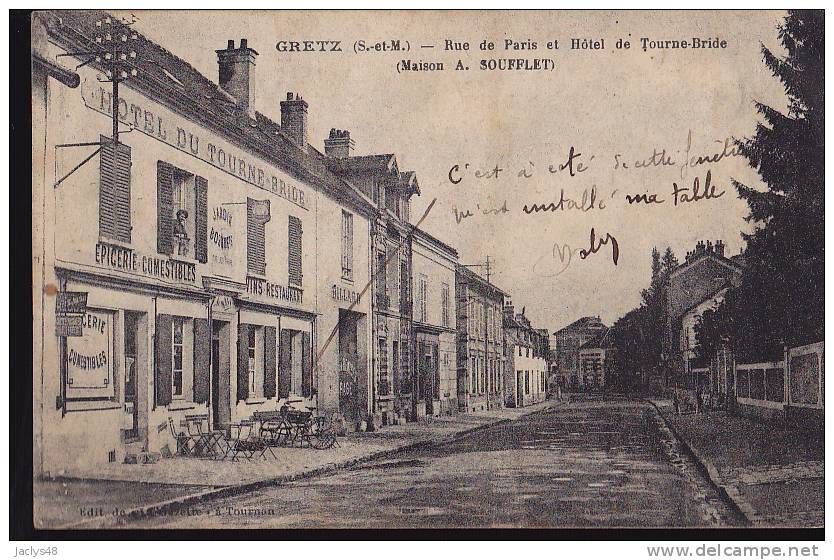 GRETZ (S.-et-M.) — Rue de Paris et Hôtel de Tourne-Bride
(Maison A. SOUFFLET)
C'est à côté de cette fenêtre
qu'est installée ma table
HOTEL DU TOURNE-BRIDE
JARDIN
BOSQUETS
EPICERIE COMESTIBLES
VINS-RESTAURANT
BILLARD
CERIE
COMESTIBLES
Edit de à Tournan
jaclys48
http://www.delcampe.net